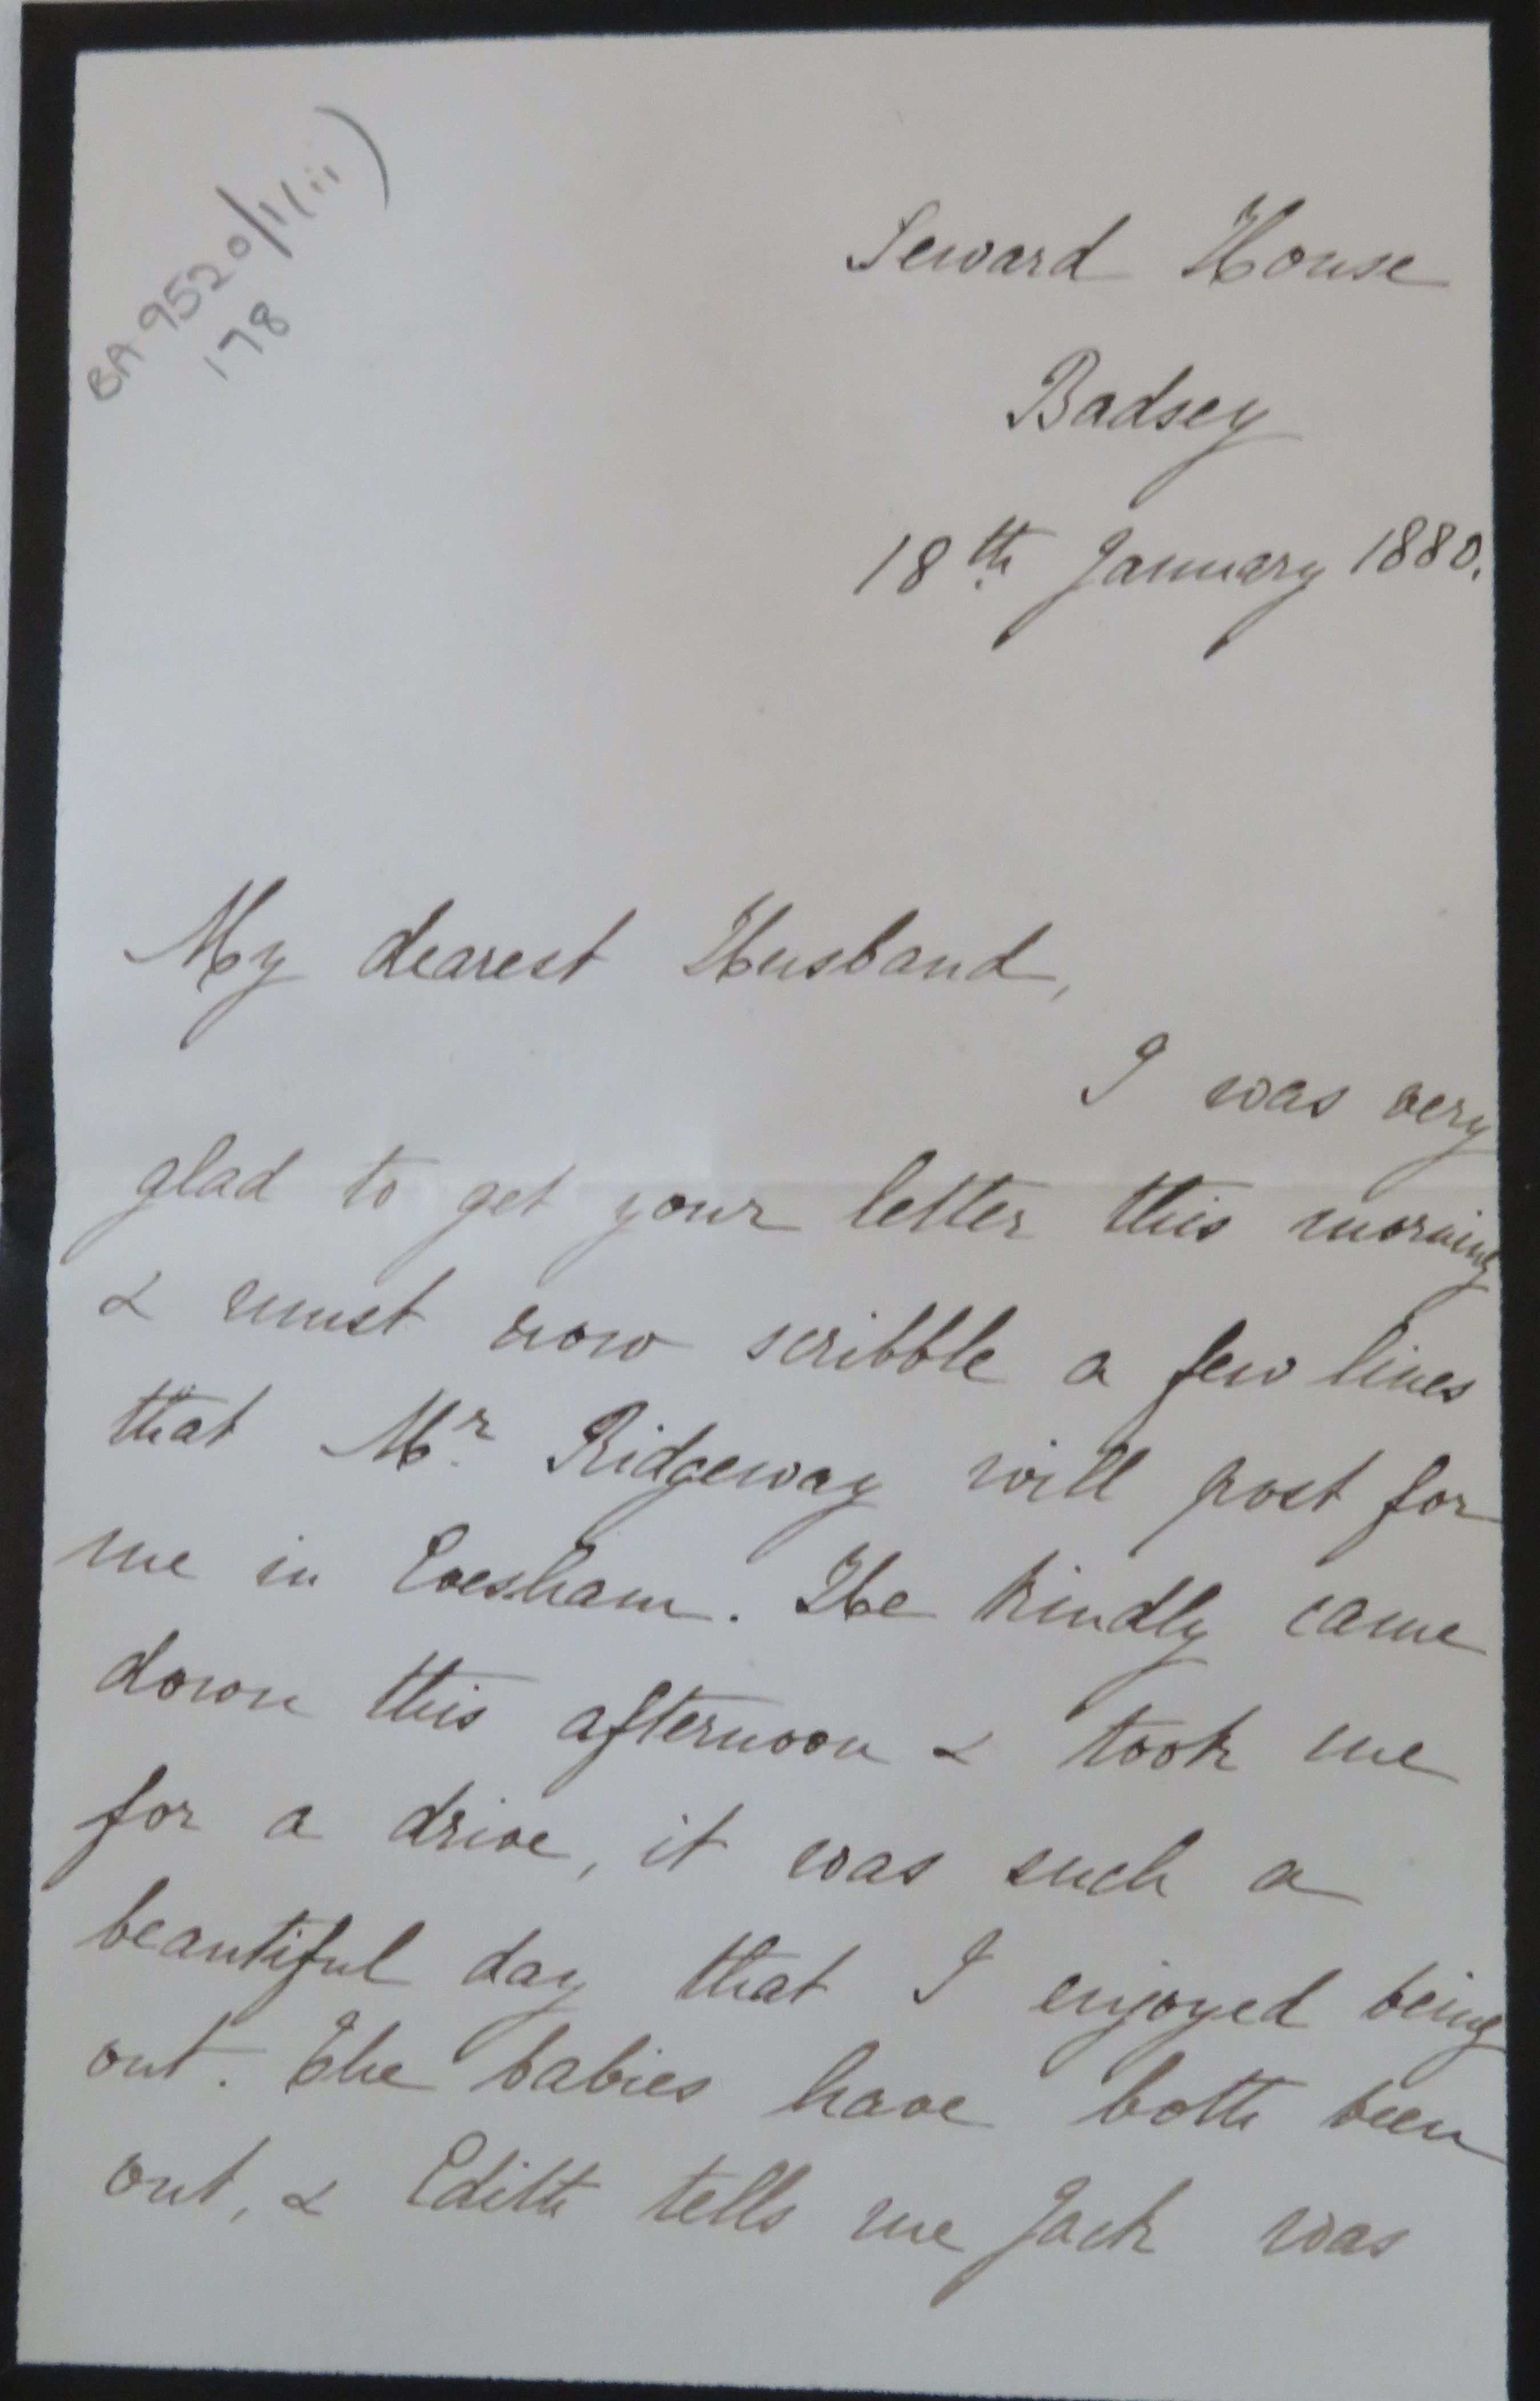 BA 9520/1/ii)
178
Seward House
Badsey
18th January 1880.
My dearest Husband,
I was very
glad to get your letter this morning
& must now scribble a few lines
that Mr. Ridgeway will post for
me in Evesham. He kindly came
down this afternoon & took me
for a drive, it was such a
beautiful day that I enjoyed being
out. The babies have both been
out, & Edith tells me Jack was